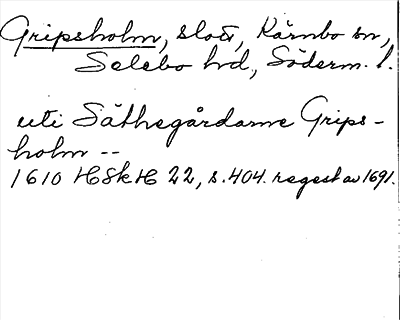 Gripsholm, slott, Kärnbo sn,
Selebo hd, Söderm. l.
uti Säthegårdarne Grips-
holm --
1610 HSkH 22, s. 404. regest av 1691.